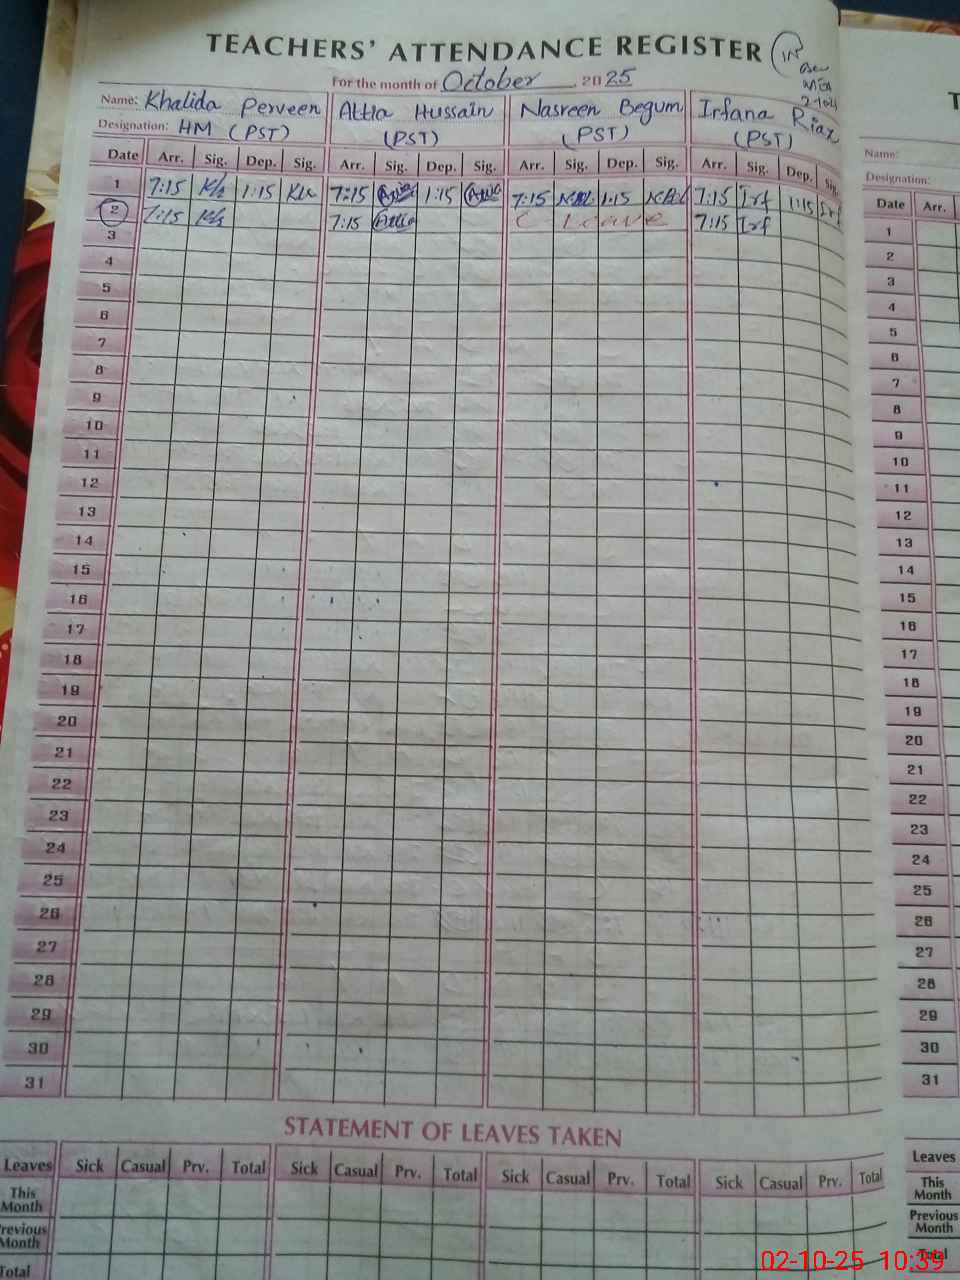 TEACHERS' ATTENDANCE REGISTER
For the month of October 2025
Name: Khalida Perveen Attia Hussain Nasreen Begum Irfana Riaz
Designation: HM (PST) (PST) (PST) (PST)
Date Arr. Sig. Dep. Sig. Arr. Sig. Dep. Sig. Arr. Sig. Dep. Sig. Arr. Sig. Dep. Sig.
1 7:15 1:15 7:15 1:15 7:15 1:15 7:15 Irf 1:15 Irf
2 7:15 7:15 Attia C Leave 7:15 Irf
3
4
5
6
7
8
9
10
11
12
13
14
15
16
17
18
19
20
21
22
23
24
25
26
27
28
29
30
31
STATEMENT OF LEAVES TAKEN
Leaves Sick Casual Prv. Total Sick Casual Prv. Total Sick Casual Prv. Total Sick Casual Prv. Total
This Month
Previous Month
Total
T
Name:
Designation:
Date Arr.
1
2
3
4
5
6
7
8
9
10
11
12
13
14
15
16
17
18
19
20
21
22
23
24
25
26
27
28
29
30
31
Leaves
This Month
Previous Month
Total
02-10-25 10:39